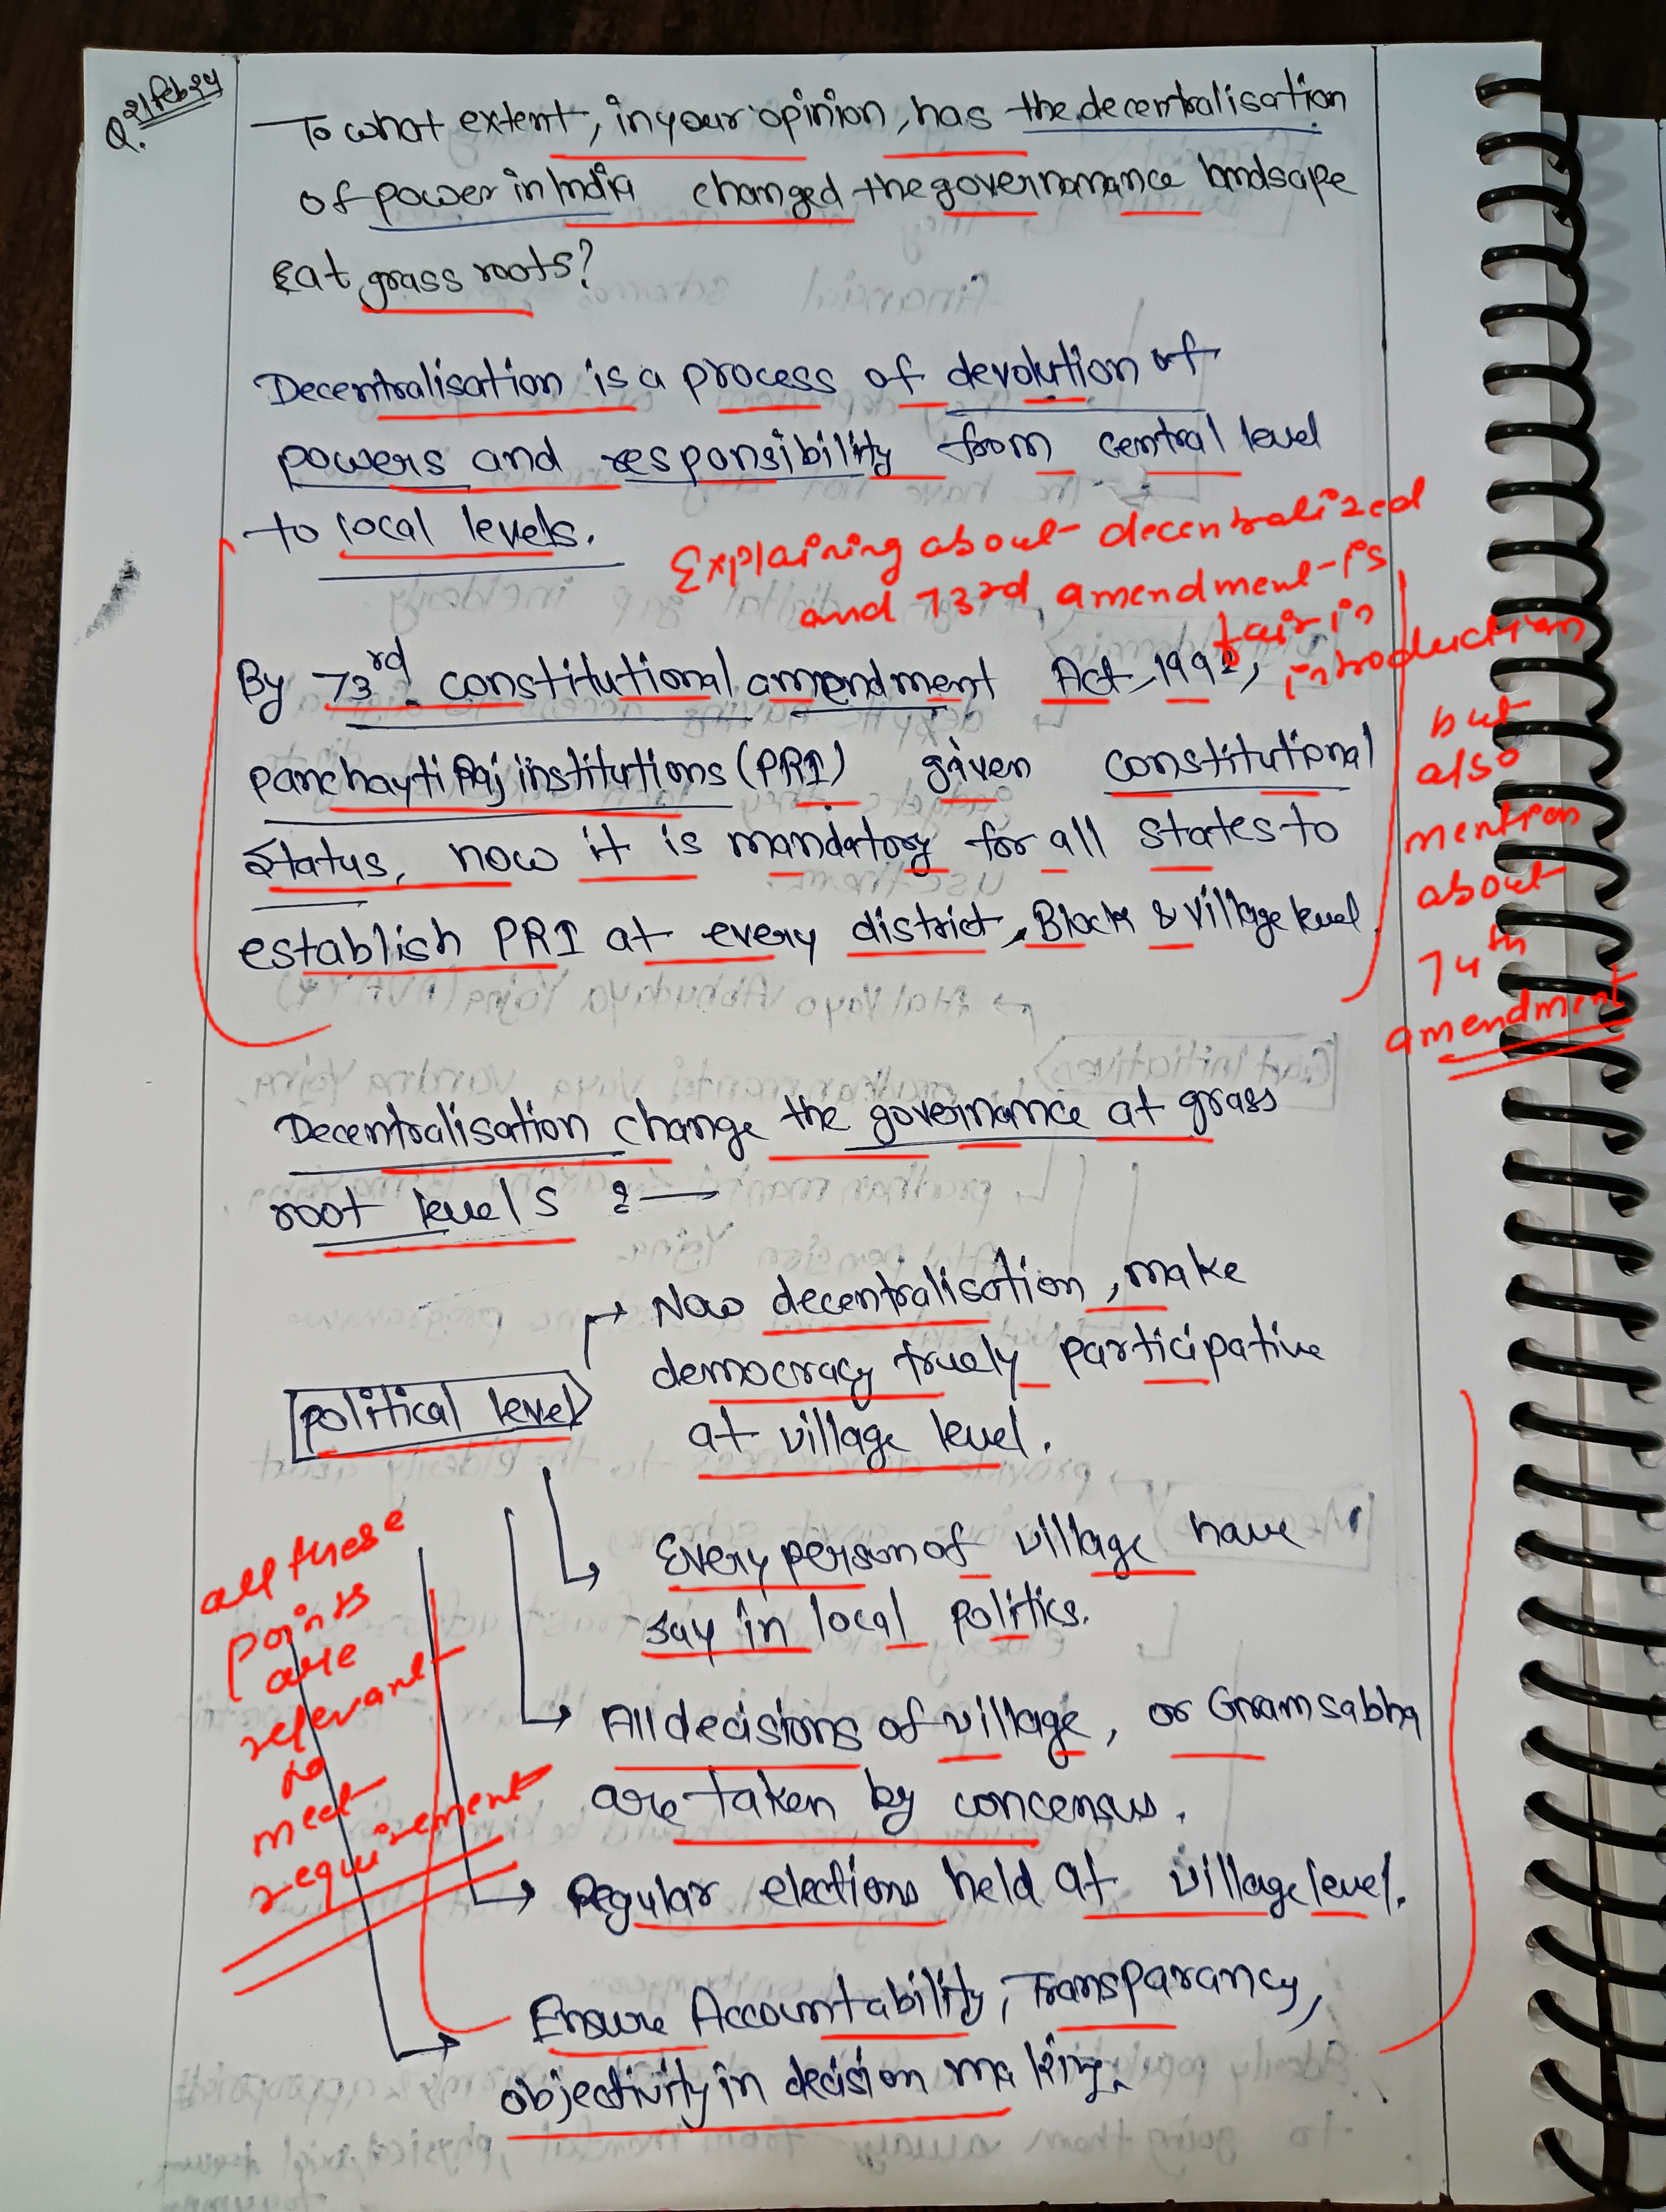 21 Feb 24
Q. To what extent, in your opinion, has the decentralisation
of power in India changed the governomance landsape
at grass roots?
Decentralisation is a process of devolution of
powers and responsibility from central level
to local levels.
Explaining about decentralized
and 73rd amendment is
fair in
introduction
but
also
mention
about
74th
amendment
By 73rd constitutional amendment Act, 1992,
panchayti Raj institutions (PRI) given constitutional
status, now it is mandatory for all states to
establish PRI at every district, Block & village level.
Decentralisation change the governance at grass
root levels :—
political level
→ Now decentralisation, make
democracy truely participative
at village level.
→ Every person of village have
say in local politics.
→ All decisions of village, or Gram sabha
are taken by concensus.
→ Regular elections held at village level.
→ Ensure Accountability, Transparancy,
objectivity in decision making.
all these
points
are
relevant
to
meet
requirement